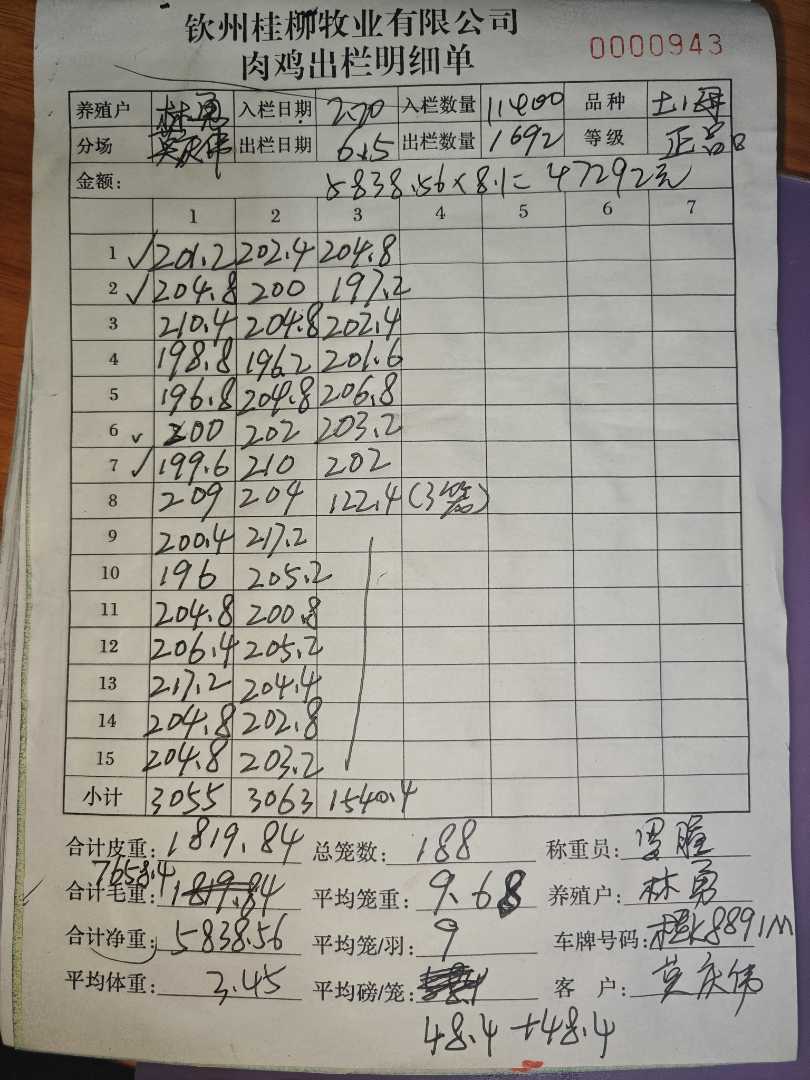 钦州桂柳牧业有限公司
肉鸡出栏明细单 0000943
养殖户 林勇 入栏日期 2.20 入栏数量 11400 品种 土1母
分场 莫庆伟 出栏日期 6.5 出栏数量 1692 等级 正品
金额: 5838.56×8.1= 47292元
1 2 3 4 5 6 7
1 ✓ 201.2 202.4 204.8
2 ✓ 204.8 200 197.2
3 210.4 204.8 202.4
4 198.8 196.2 201.6
5 196.8 204.8 206.8
6 ✓ 200 202 203.2
7 ✓ 199.6 210 202
8 209 204 122.4 (3笼)
9 200.4 217.2
10 196 205.2
11 204.8 200.8
12 206.4 205.2
13 217.2 204.4
14 204.8 202.8
15 204.8 203.2
小计 3055 3063 1540.4
合计皮重: 1819.84 总笼数: 188 称重员:
7658.4
合计毛重: 1819.84 平均笼重: 9.68 养殖户: 林勇
合计净重: 5838.56 平均笼/羽: 9 车牌号码: 桂K8891M
平均体重: 3.45 平均磅/笼: 客 户: 莫庆伟
48.4+48.4